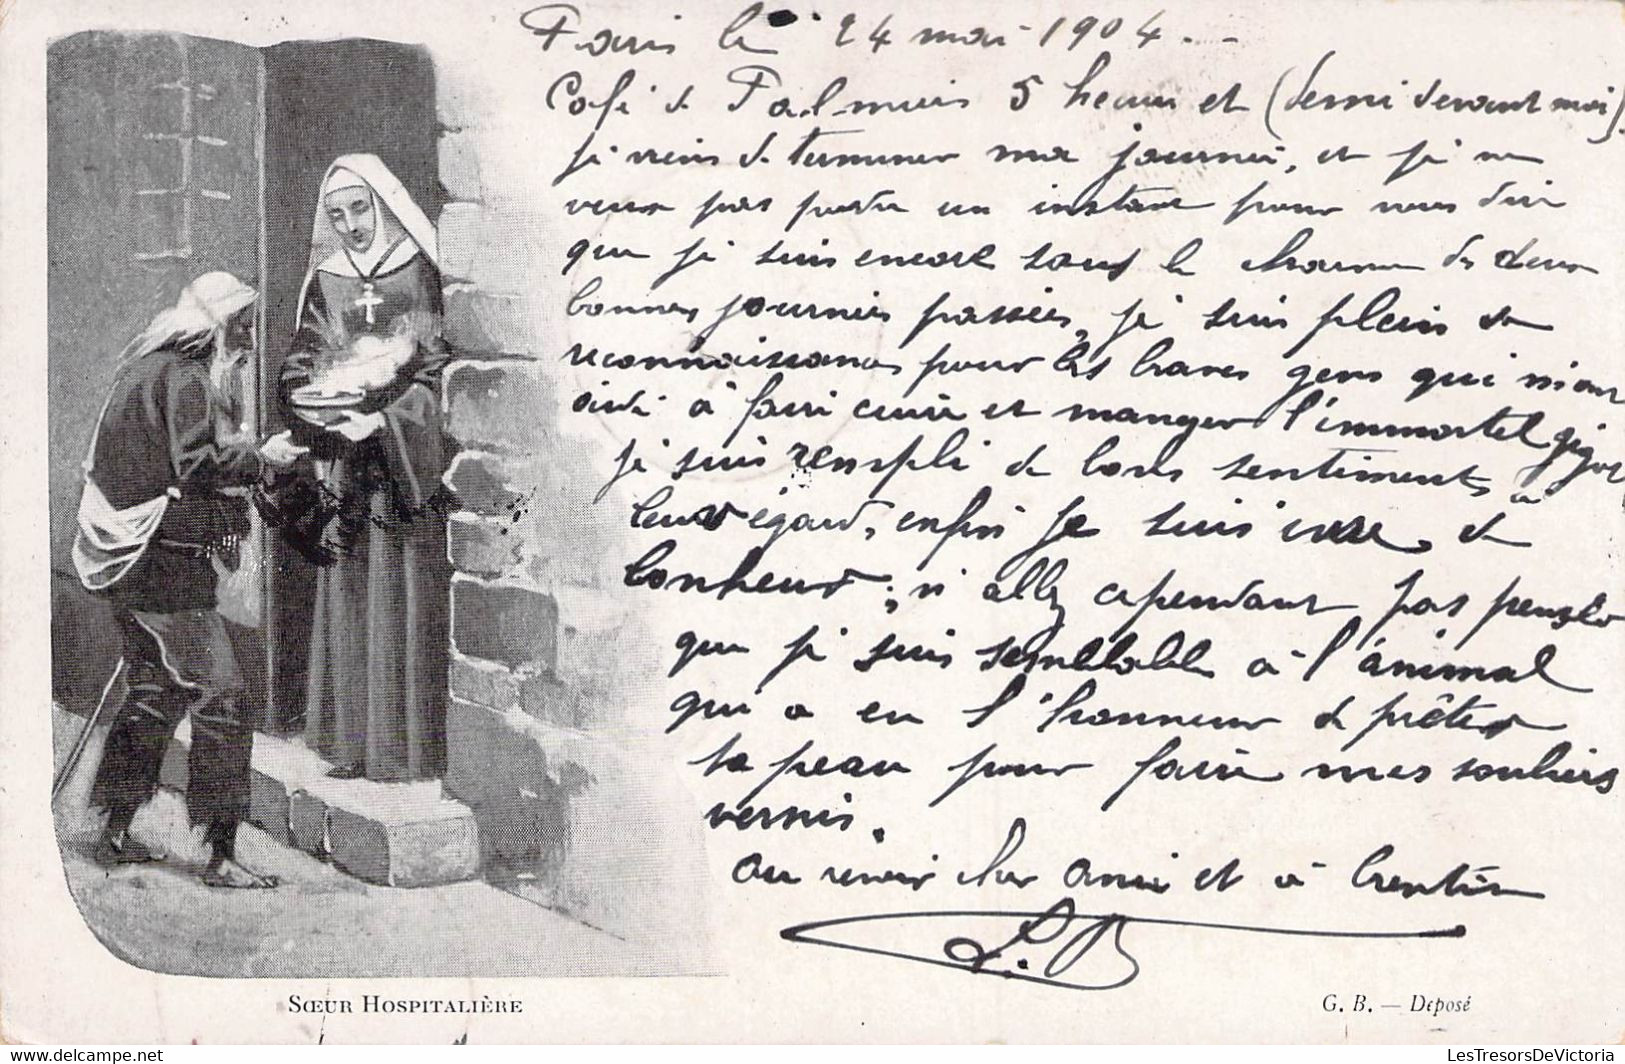 Paris le 24 mai 1904...
Café de Palmiers 5 heures et (demi devant moi)
je viens de terminer ma journée, et je ne
veux pas perdre un instant pour vous dire
que je suis encore sous le charme des deux
bonnes journées passées, je suis plein de
reconnaissance pour les braves gens qui m'ont
aidé à faire cuire et manger l'immortel gigot
je suis rempli de bons sentiments à
leur égard, enfin je suis ivre de
bonheur; n'allez cependant pas penser
que je suis semblable à l'animal
qui a eu l'honneur de prêter
sa peau pour faire mes souliers
vernis.
au revoir cher ami et à bientôt
L.B
SŒUR HOSPITALIÈRE
G. B. — Deposé
LesTresorsDeVictoria